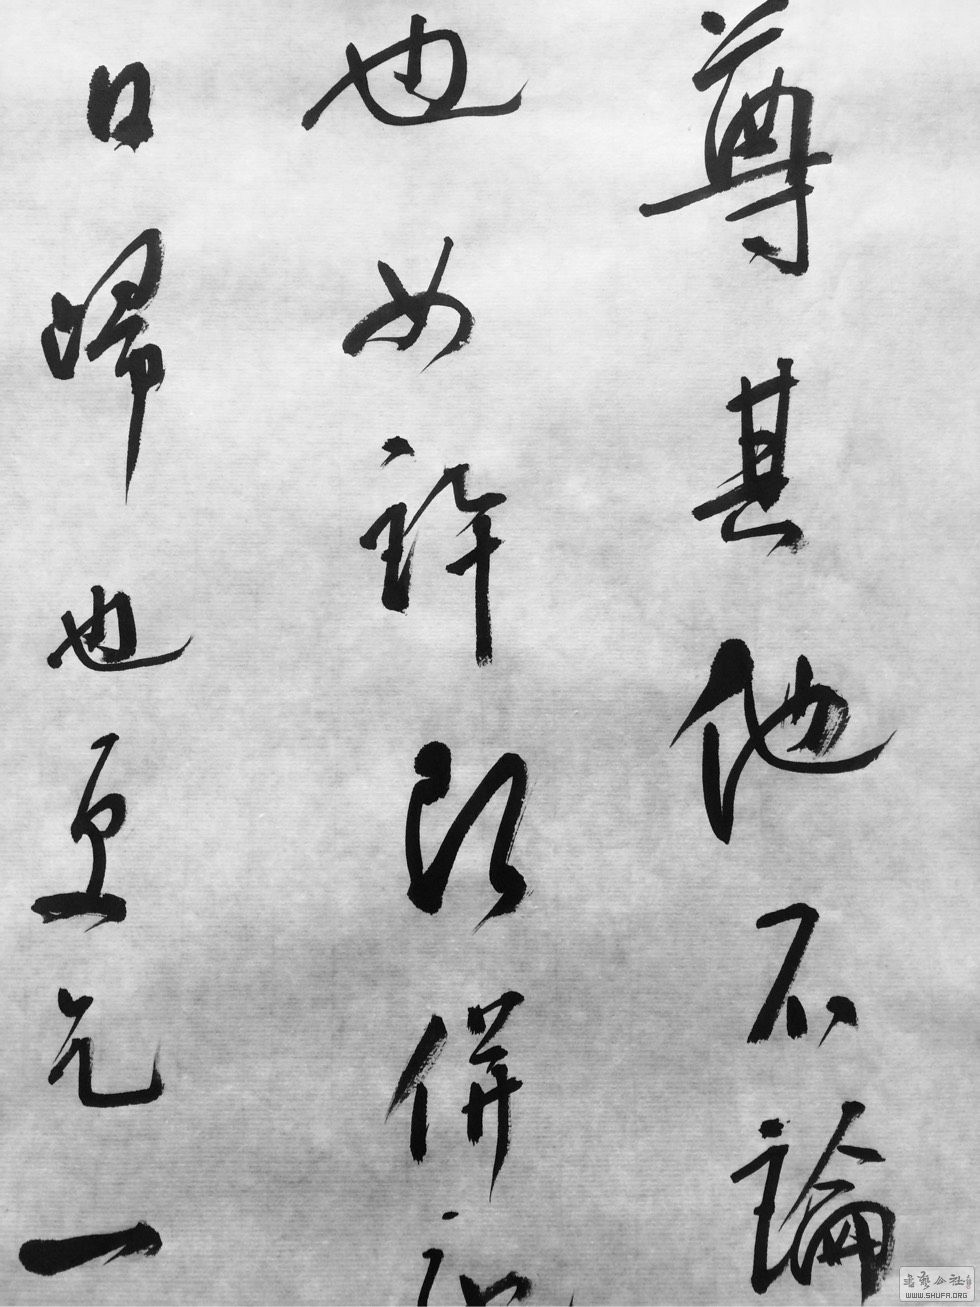 尊其他不論
也如許即併
日歸也更乞一
書藝公社
WWW.SHUFA.ORG